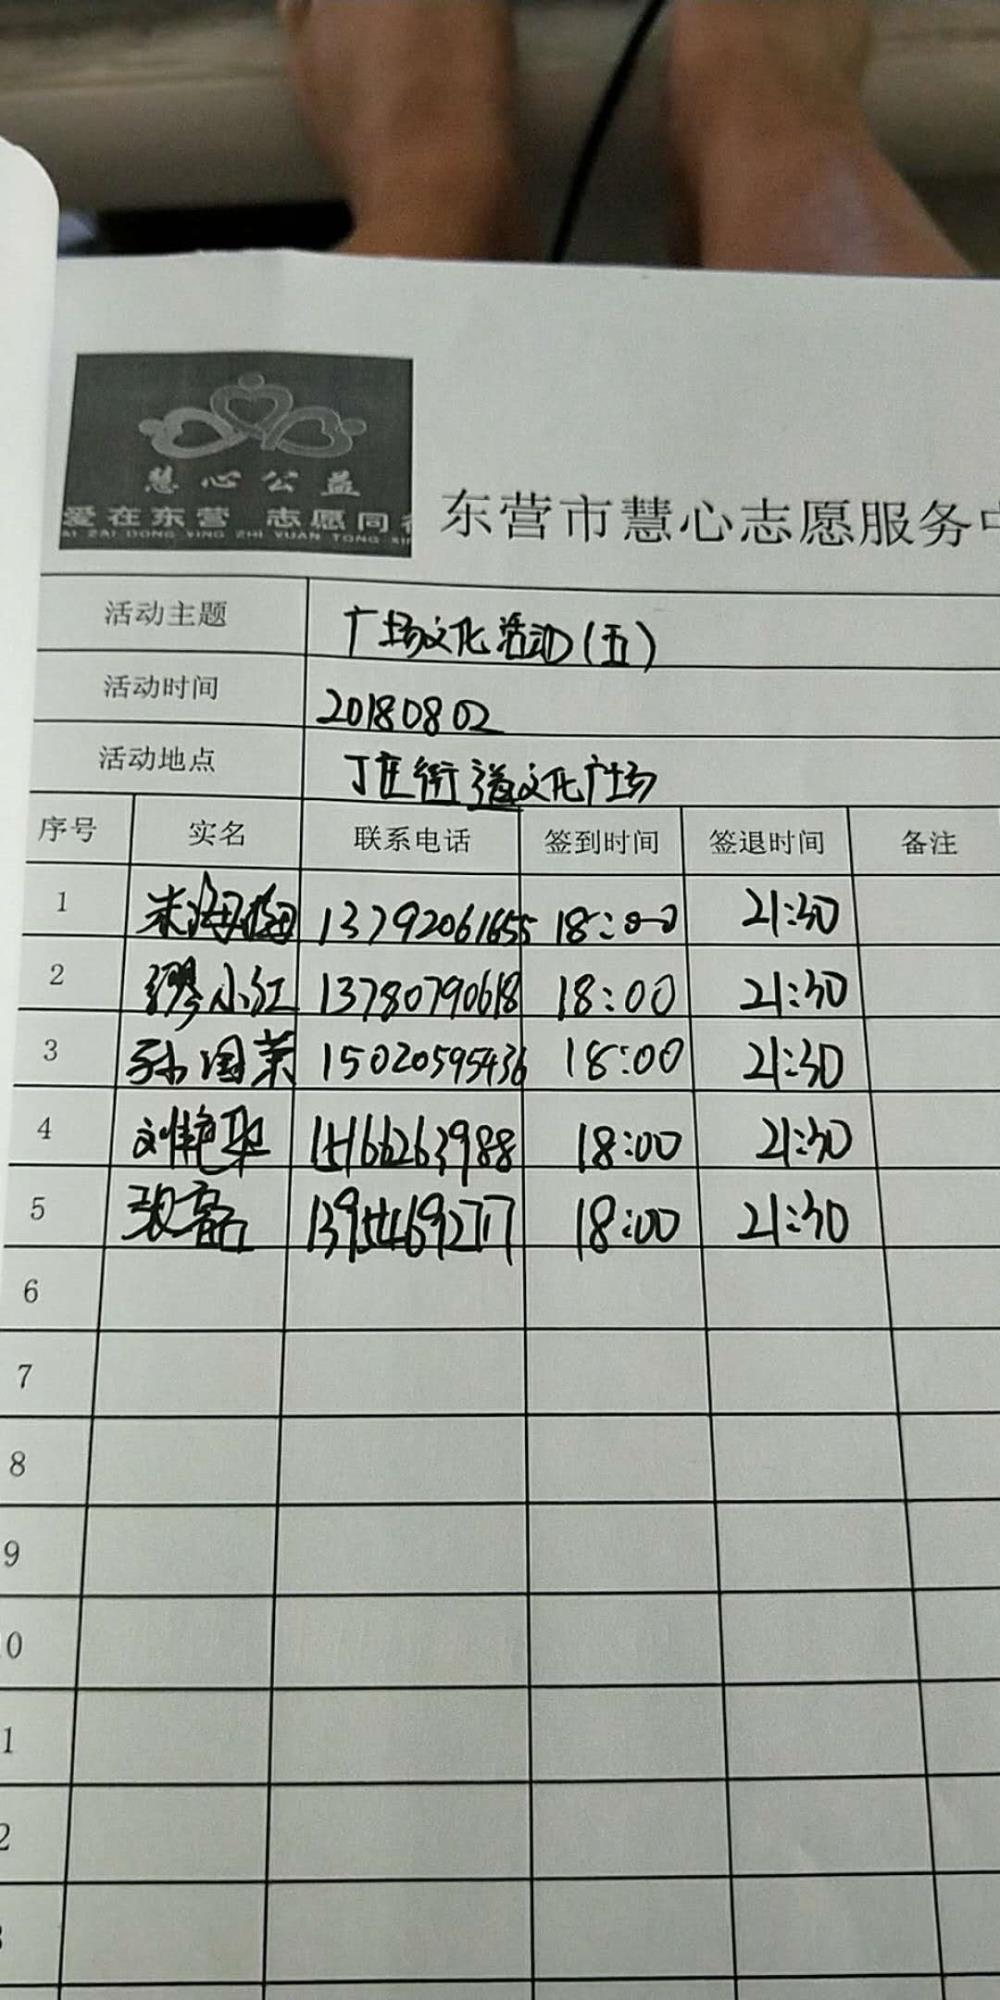 慧心公益
爱在东营 志愿同
AI ZAI DONG YING ZHI YUAN TONG XI
东营市慧心志愿服务中
活动主题 广场文化活动(五)
活动时间 20180802
活动地点 丁庄街道文化广场
序号 实名 联系电话 签到时间 签退时间 备注
1 米海梅 13792061655 18:00 21:30
2 缪小红 13780790618 18:00 21:30
3 孙国荣 15020595436 18:00 21:30
4 刘艳翠 15166263988 18:00 21:30
5 张磊 18:00 21:30
6
7
8
9
0
1
2